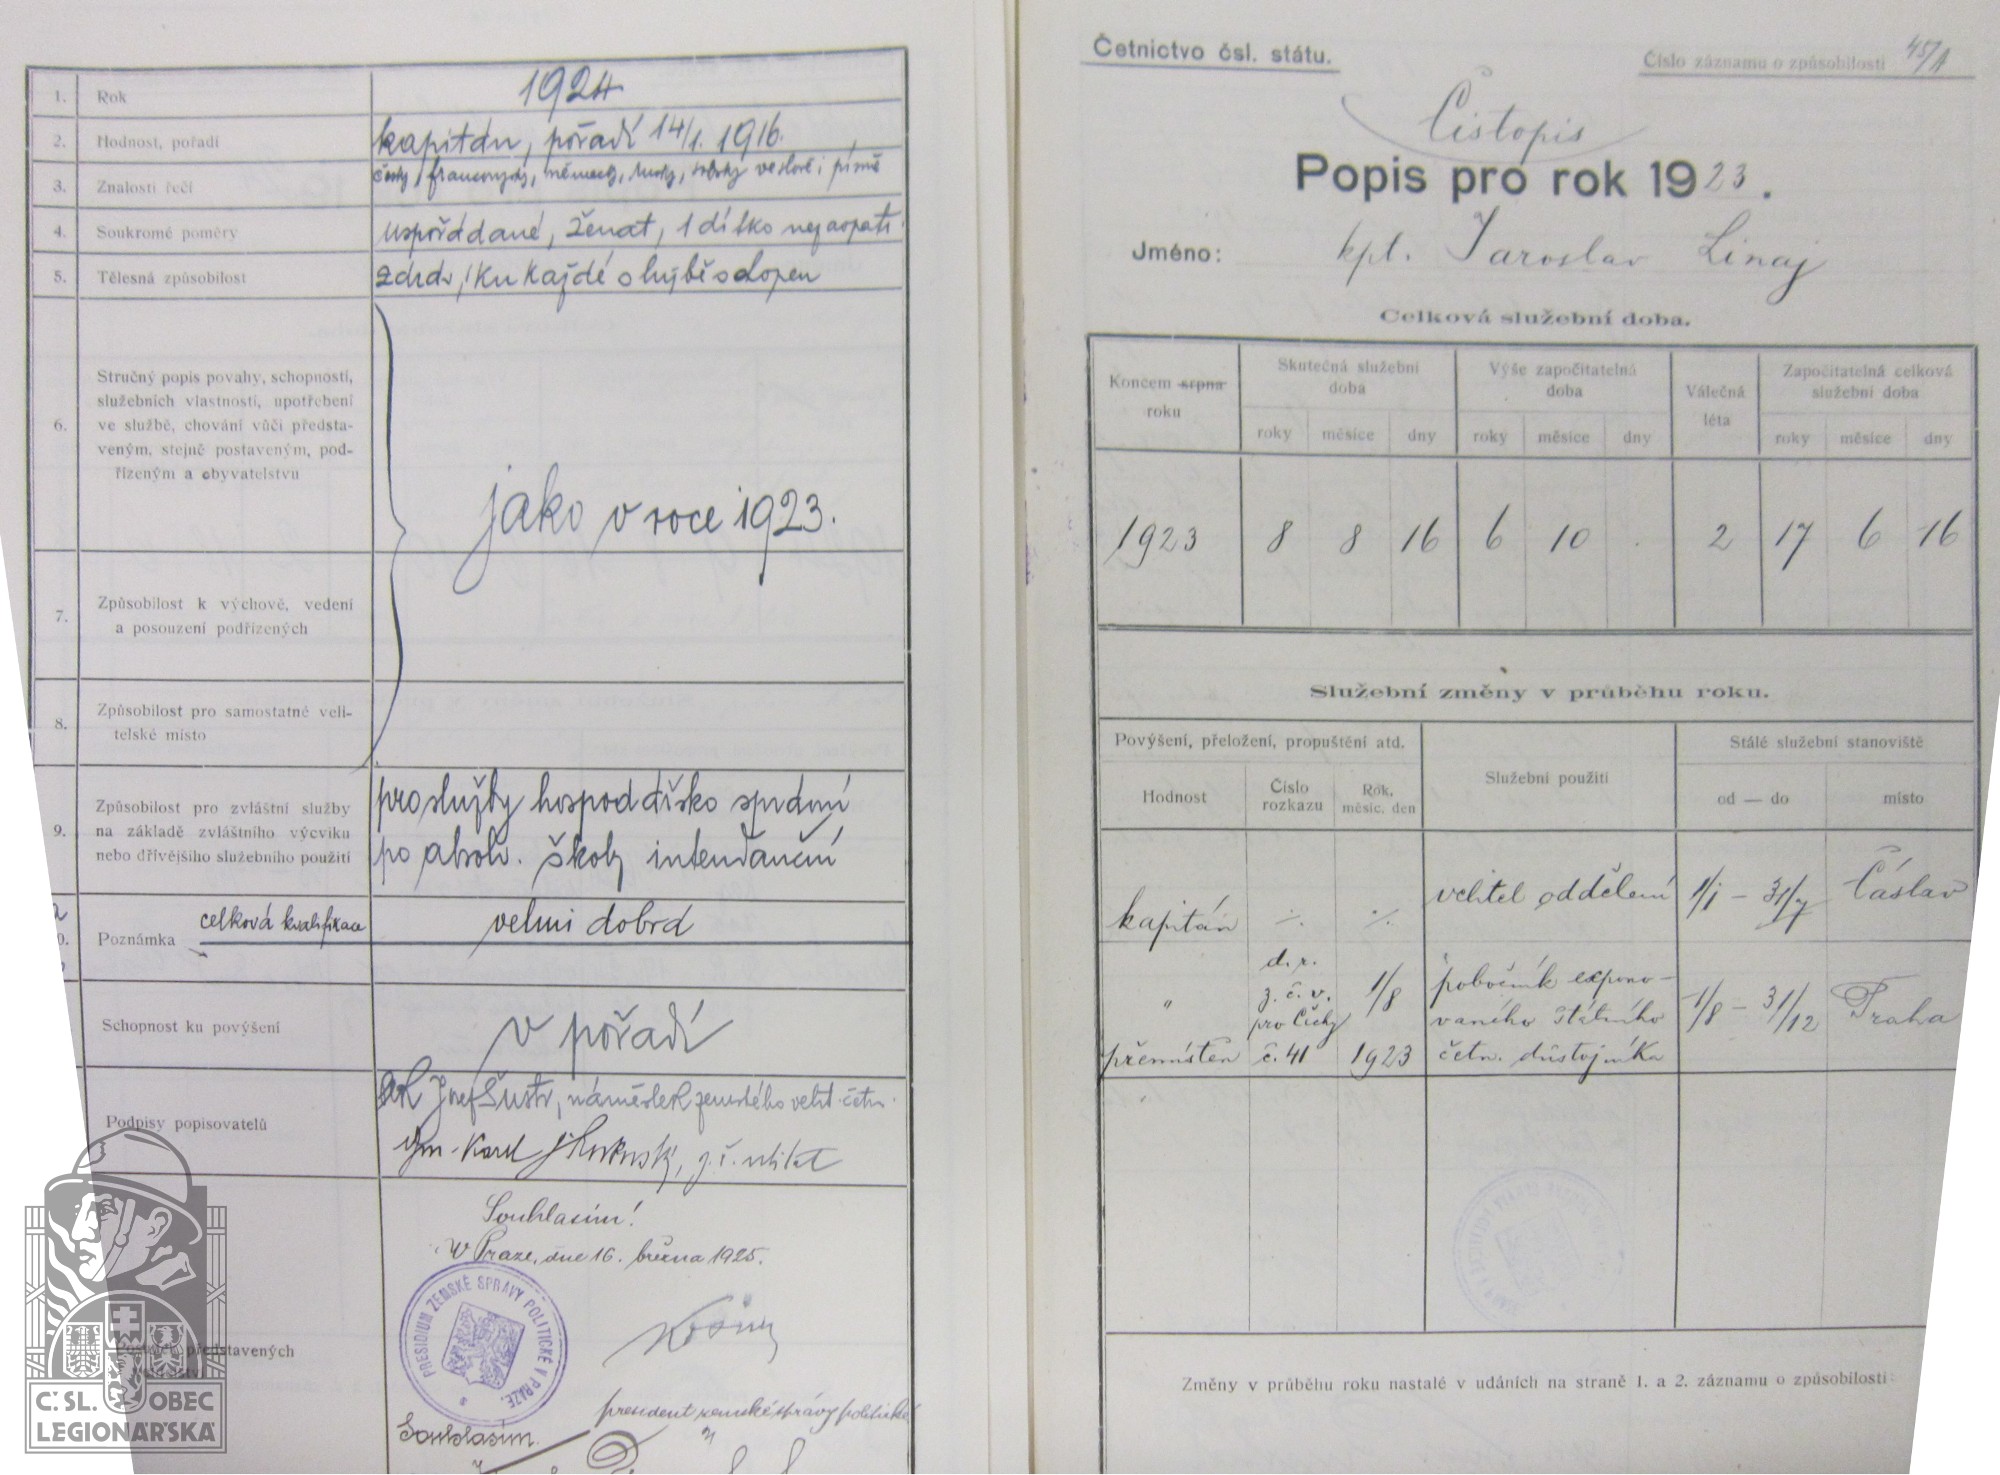 1. Rok 1924
2. Hodnost, pořadí kapitán, pořadí 14/1. 1916.
3. Znalosti řečí česky, francouzsky, německy, rusky, srbsky ve slově i písmě
4. Soukromé poměry uspořádané, ženat, 1 dítko nezaopatř.
5. Tělesná způsobilost zdráv, ku každé službě schopen
6. Stručný popis povahy, schopností,
služebních vlastností, upotřebení
ve službě, chování vůči představeným, stejně postaveným, podřízeným a obyvatelstvu
jako v roce 1923.
7. Způsobilost k výchově, vedení
a posouzení podřízených
8. Způsobilost pro samostatné velitelské místo
9. Způsobilost pro zvláštní služby
na základě zvláštního výcviku
nebo dřívějšího služebního použití
pro služby hospodářsko správní
po absolv. školy intendanční
Poznámka celková kvalifikace velmi dobrá
Schopnost ku povýšení v pořadí
Podpisy popisovatelů
Josef Šustr, náměstek zemského velit. četn.
Karel
Souhlasím!
V Praze, dne 16. března 1925.
PRESIDIUM ZEMSKÉ SPRÁVY POLITICKÉ V PRAZE.
představených
president zemské správy politické
Souhlasím.
Č.SL. OBEC
LEGIONÁŘSKÁ
Četnictvo čsl. státu.
Číslo záznamu o způsobilosti 45/1
Čistopis
Popis pro rok 1923.
Jméno: kpt. Jaroslav Linaj
Celková služební doba.
Koncem srpna roku
Skutečná služební doba
Výše započítatelná doba
Válečná léta
Započítatelná celková služební doba
roky měsíce dny roky měsíce dny roky měsíce dny
1923 8 8 16 6 10 . 2 17 6 16
Služební změny v průběhu roku.
Povýšení, přeložení, propuštění atd.
Služební použití
Stálé služební stanoviště
Hodnost
Číslo rozkazu
Rok, měsíc, den
od — do
místo
kapitán ./. ./. velitel oddělení 1/1 – 31/7 Čáslav
" d. r.
z. č. v.
pro Čechy
č. 41
přemístěn
1/8
1923
pobočník exponovaného státního
četn. důstojníka
1/8 – 31/12 Praha
Změny v průběhu roku nastalé v udáních na straně 1. a 2. záznamu o způsobilosti: